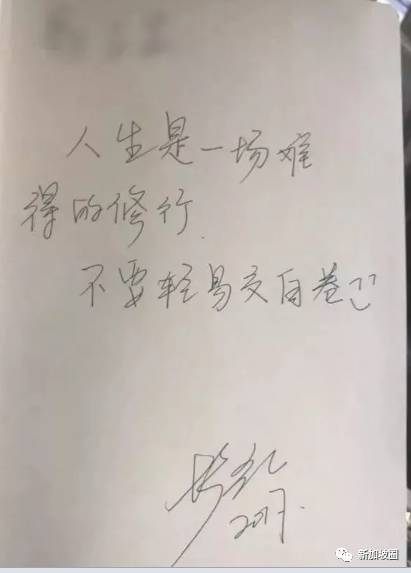 人生是一场难
得的修行.
不要轻易交白卷
2017.
新加坡圈